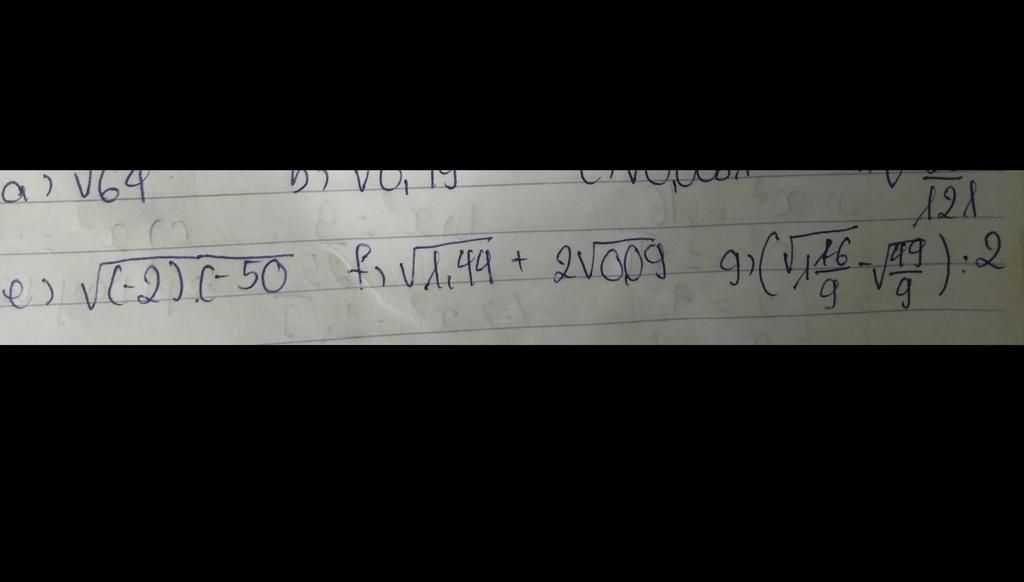 a) √64 b) √0,
121
e) √(-2).(-50 f, √1,44 + 2√0,09 g, (√1 16/9 - √49/9) : 2